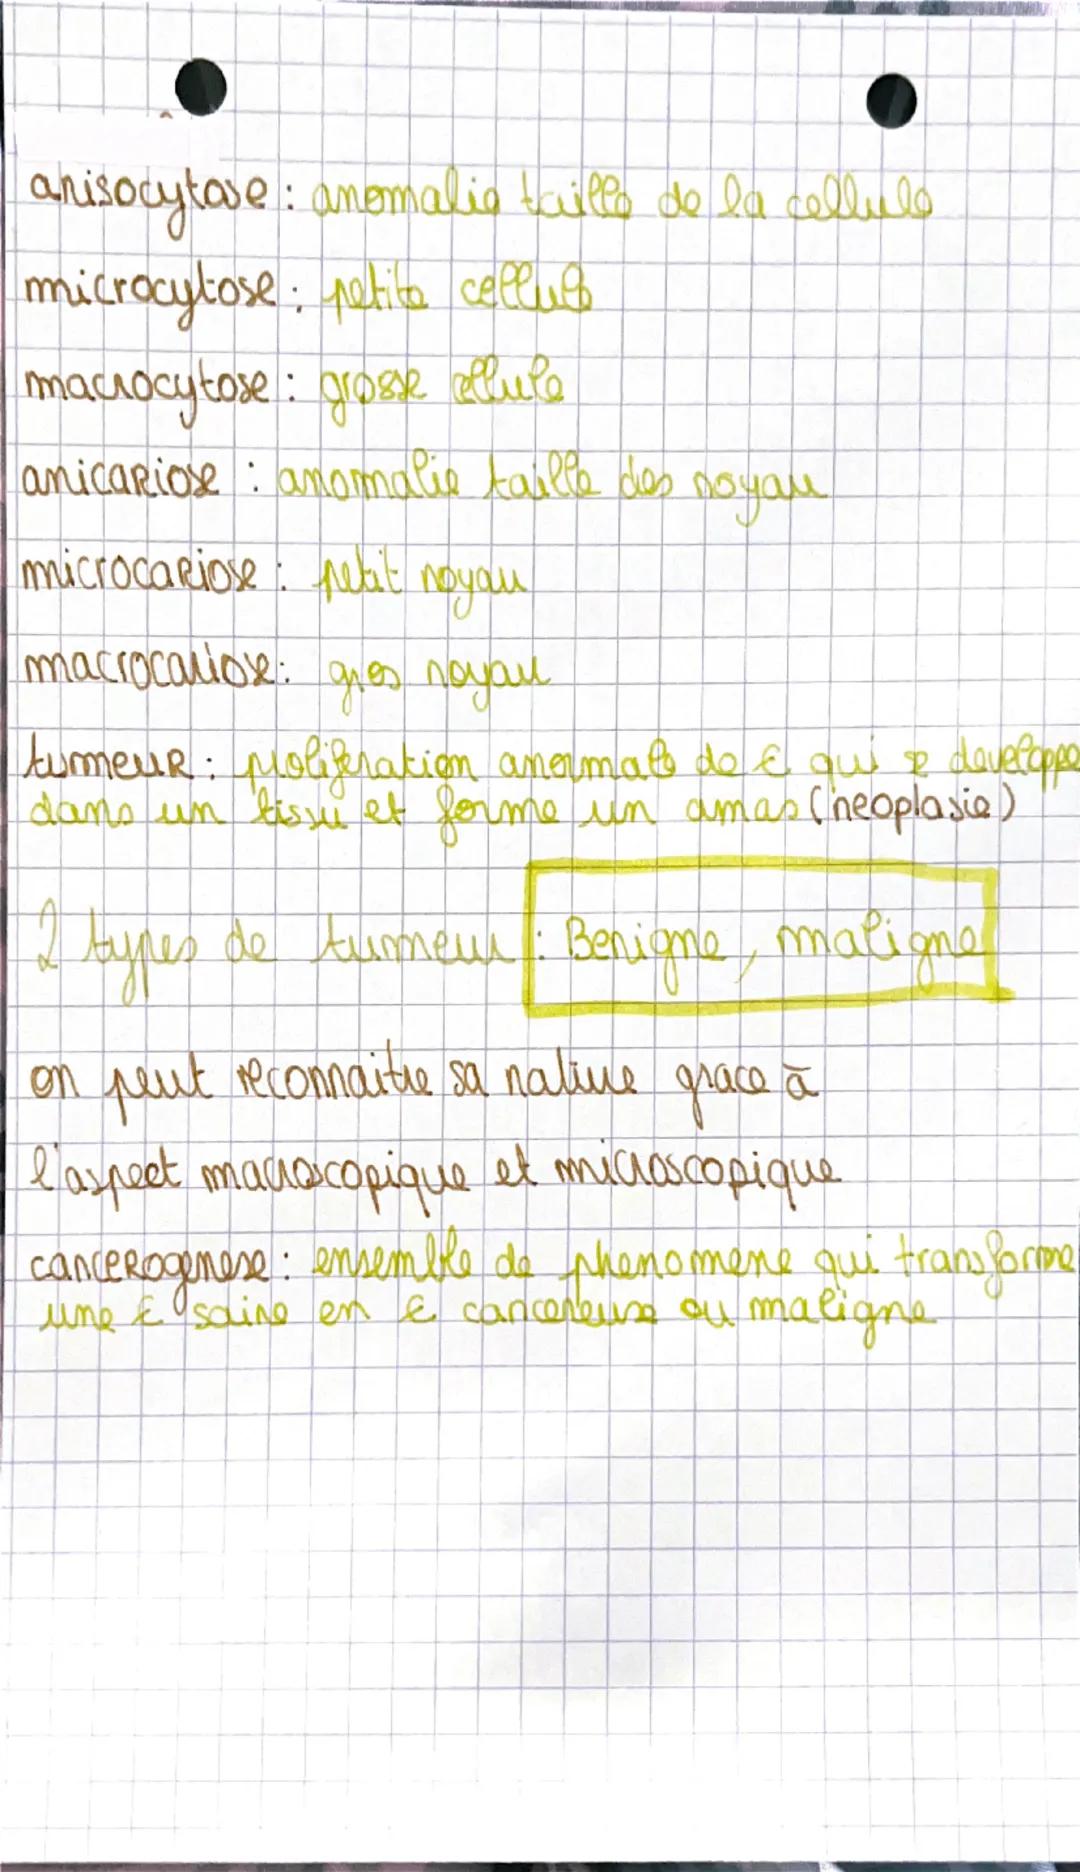 anisocytose : anomalie taille de la cellule
microcytose : petite cellule
macrocytose : grosse ellule
anicariose : anomalie taille des noyau
microcariose : petit noyau
macrocariose : gros noyau
tumeur : proliferation anormale de € qui se developpe
dans un tissu et forme un amas (neoplasie)
2 types de tumeur : Benigne, maligne
on peut reconnaitre sa nature grace à
l'aspect macroscopique et microscopique
cancerogenese : ensemble de phenomene qui transforme
une € saine en € cancereuse ou maligne